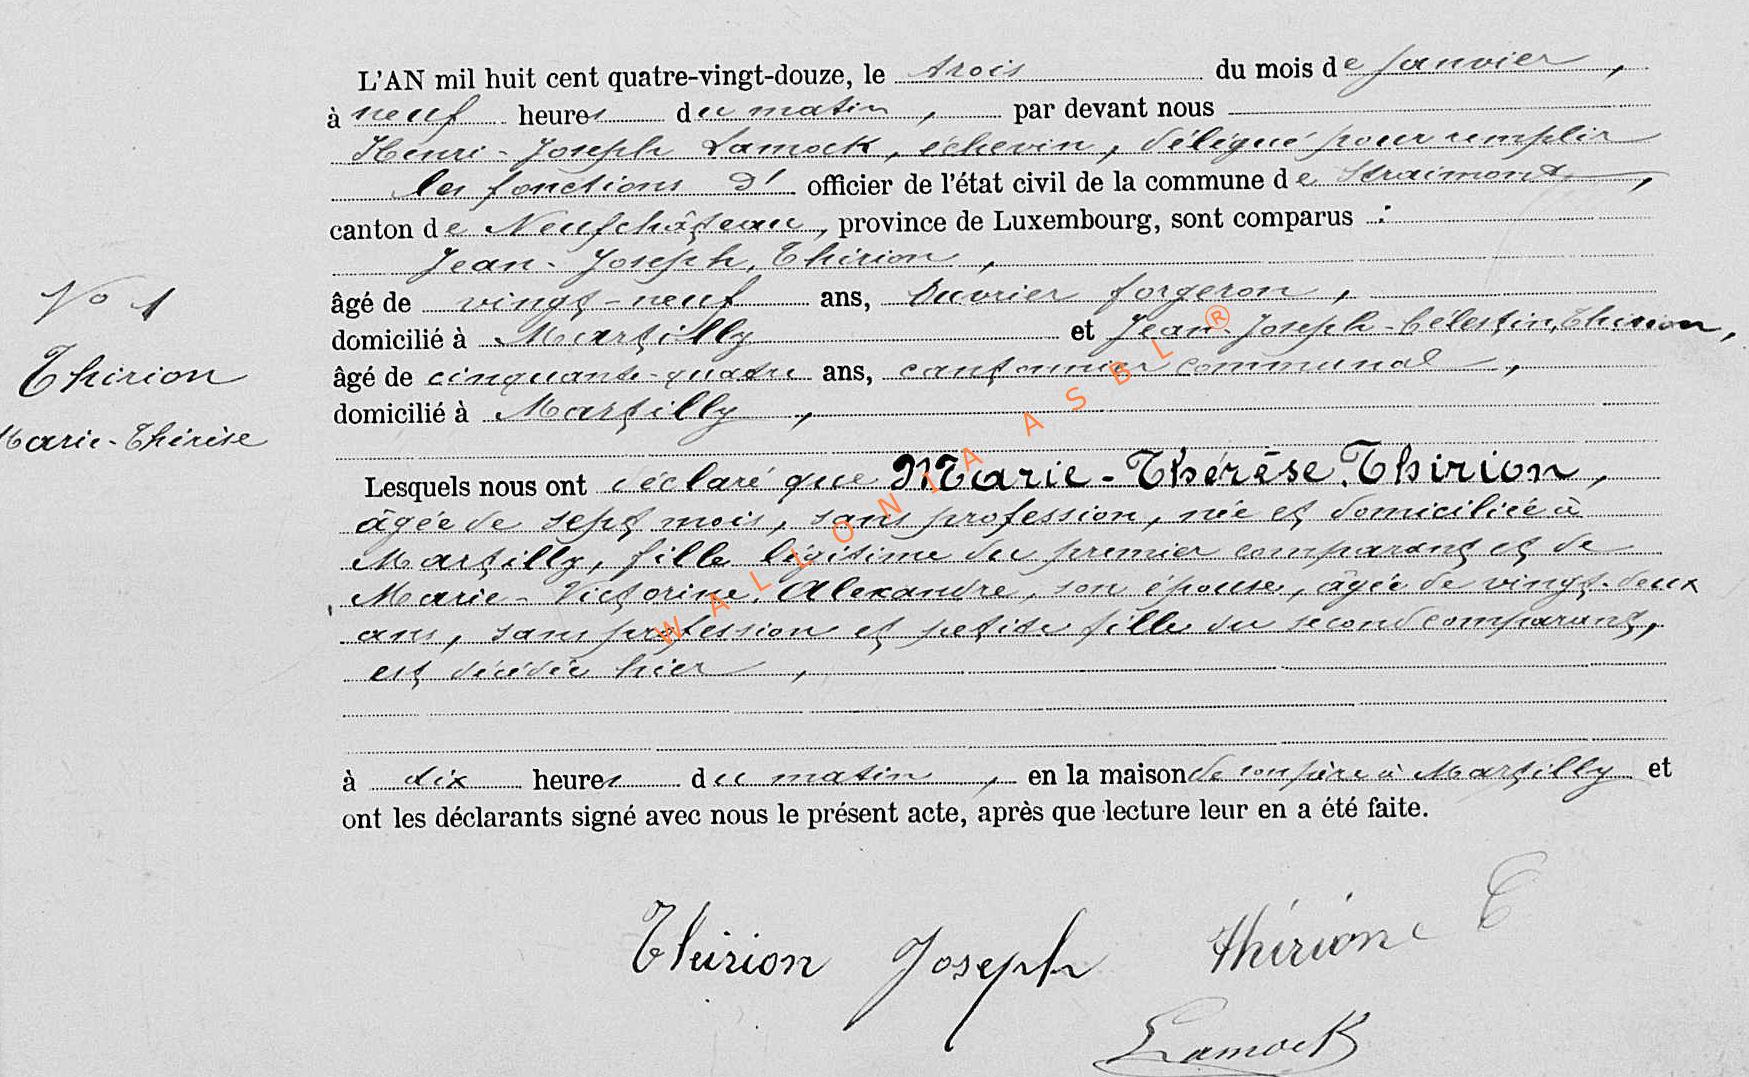 L'AN mil huit cent quatre-vingt-douze, le trois du mois de Janvier,
à neuf heures du matin, par devant nous
Henri-Joseph Lamock, échevin, délégué pour remplir
les fonctions d' officier de l'état civil de la commune de Straimont,
canton de Neufchâteau, province de Luxembourg, sont comparus :
Jean-Joseph Thirion,
âgé de vingt-neuf ans, Ouvrier forgeron,
domicilié à Martilly et Jean-Joseph-Célestin Thirion,
âgé de cinquante-quatre ans, cantonnier communal,
domicilié à Martilly,
N° 1
Thirion
Marie-Thérèse
Lesquels nous ont déclaré que Marie-Thérèse Thirion,
âgée de sept mois, sans profession, née et domiciliée à
Martilly, fille légitime du premier comparant et de
Marie-Victorine Alexandre, son épouse, âgée de vingt-deux
ans, sans profession et petite fille du second comparant,
est décédée hier,
à dix heures du matin, en la maison de son père à Martilly et
ont les déclarants signé avec nous le présent acte, après que lecture leur en a été faite.
Thirion Joseph Thirion C
Lamock
WALLONIA ASBL ®